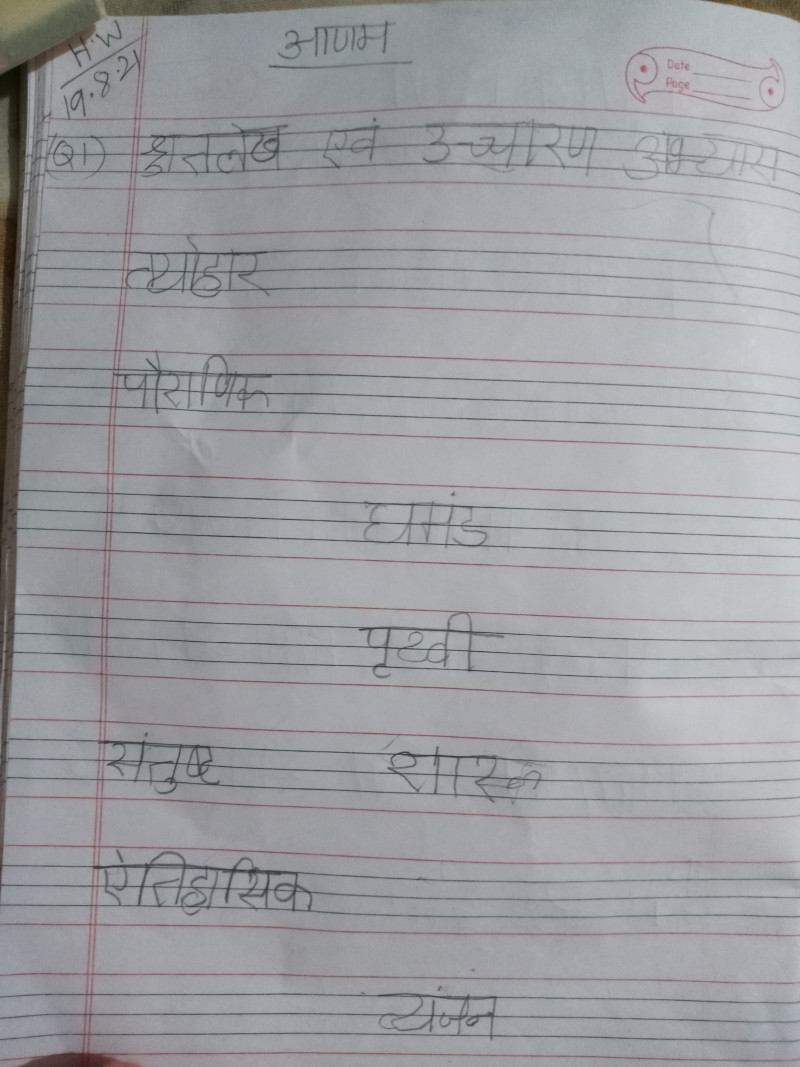 H.W
19.8.21
आणम
Date
Page
(Q1) श्रुतलेख एवं उच्चारण अभ्यास
त्योहार
पौराणिक
घमंड
पृथ्वी
संतुष्ट शास्क
ऐतिहासिक
व्यंजन